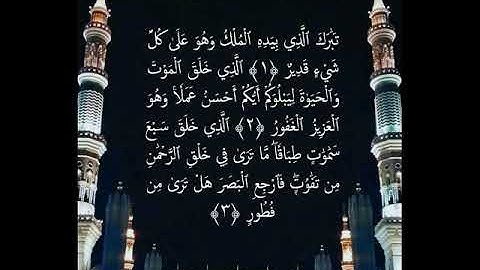 تَبَٰرَكَ ٱلَّذِي بِيَدِهِ ٱلۡمُلۡكُ وَهُوَ عَلَىٰ كُلِّ
شَيۡءٖ قَدِيرٌ ﴿١﴾ ٱلَّذِي خَلَقَ ٱلۡمَوۡتَ
وَٱلۡحَيَوٰةَ لِيَبۡلُوَكُمۡ أَيُّكُمۡ أَحۡسَنُ عَمَلٗاۚ وَهُوَ
ٱلۡعَزِيزُ ٱلۡغَفُورُ ﴿٢﴾ ٱلَّذِي خَلَقَ سَبۡعَ
سَمَٰوَٰتٖ طِبَاقٗاۖ مَّا تَرَىٰ فِي خَلۡقِ ٱلرَّحۡمَٰنِ
مِن تَفَٰوُتٖۖ فَٱرۡجِعِ ٱلۡبَصَرَ هَلۡ تَرَىٰ مِن
فُطُورٖ ﴿٣﴾